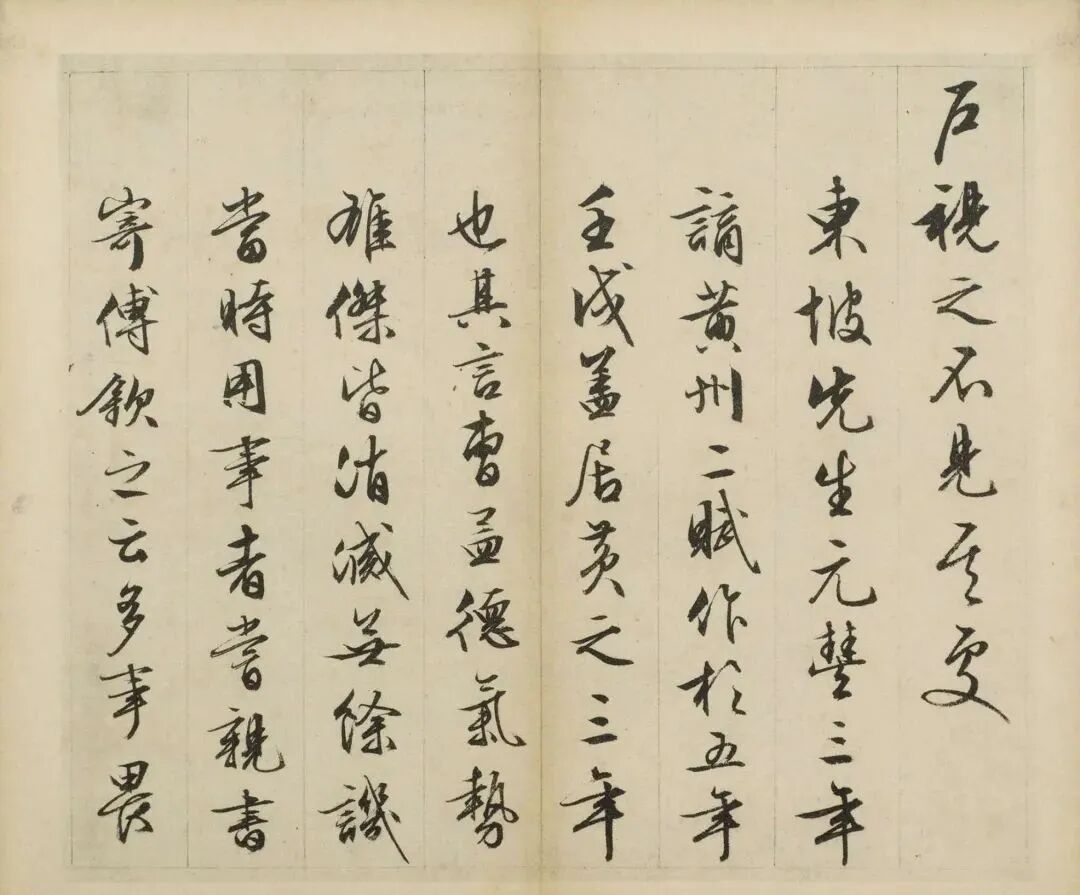 戶視之不見其處
東坡先生元豐三年
謫黃州二賦作於五年
壬戌蓋居黃之三年
也其言曹孟德氣勢
雄傑皆消滅無餘譏
當時用事者嘗親書
寄傅欽之云多事畏